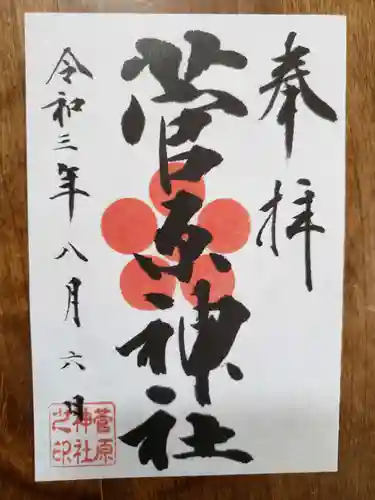 奉拝
菅原神社
令和三年八月六日
菅原
神社
之印